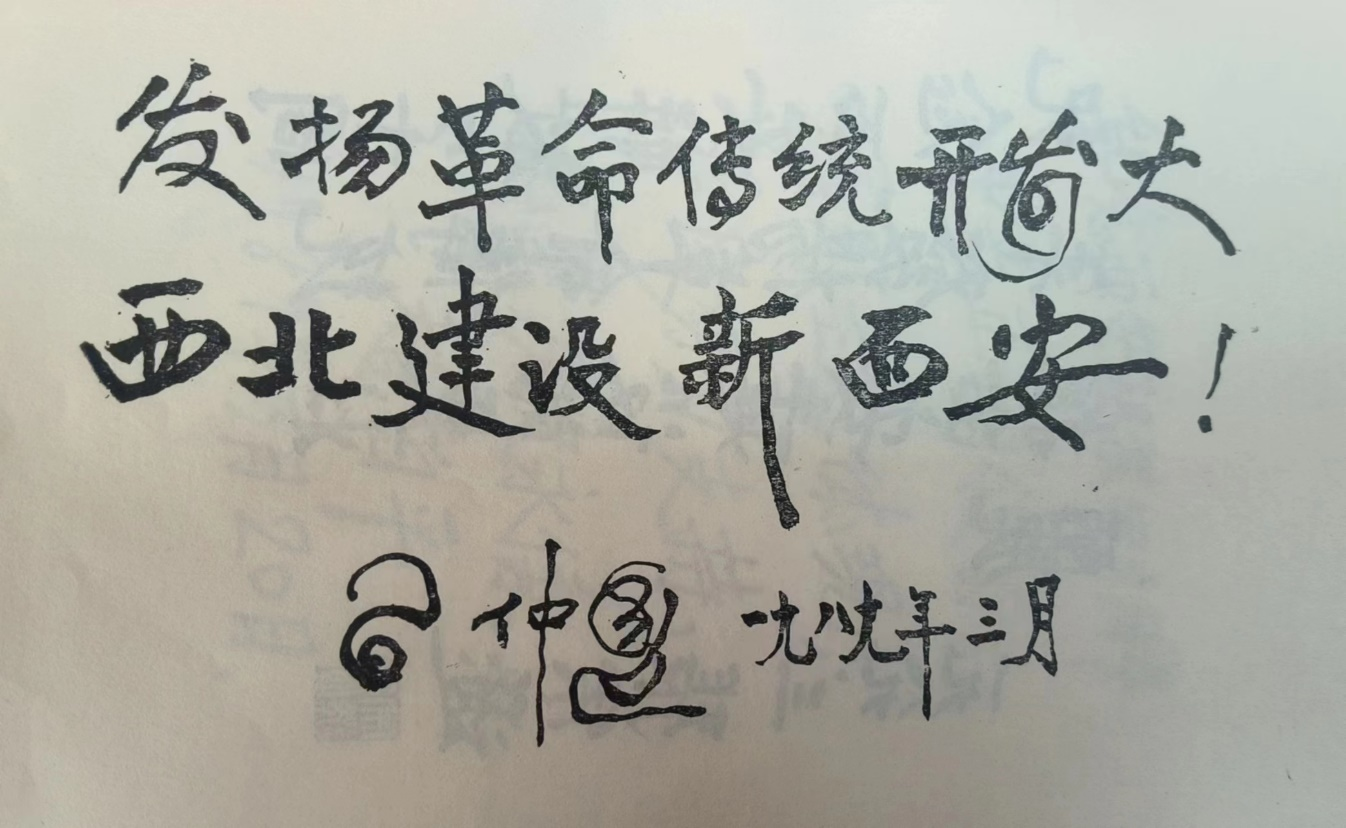 发扬革命传统开发大
西北建设新西安！
仲 一九八九年三月